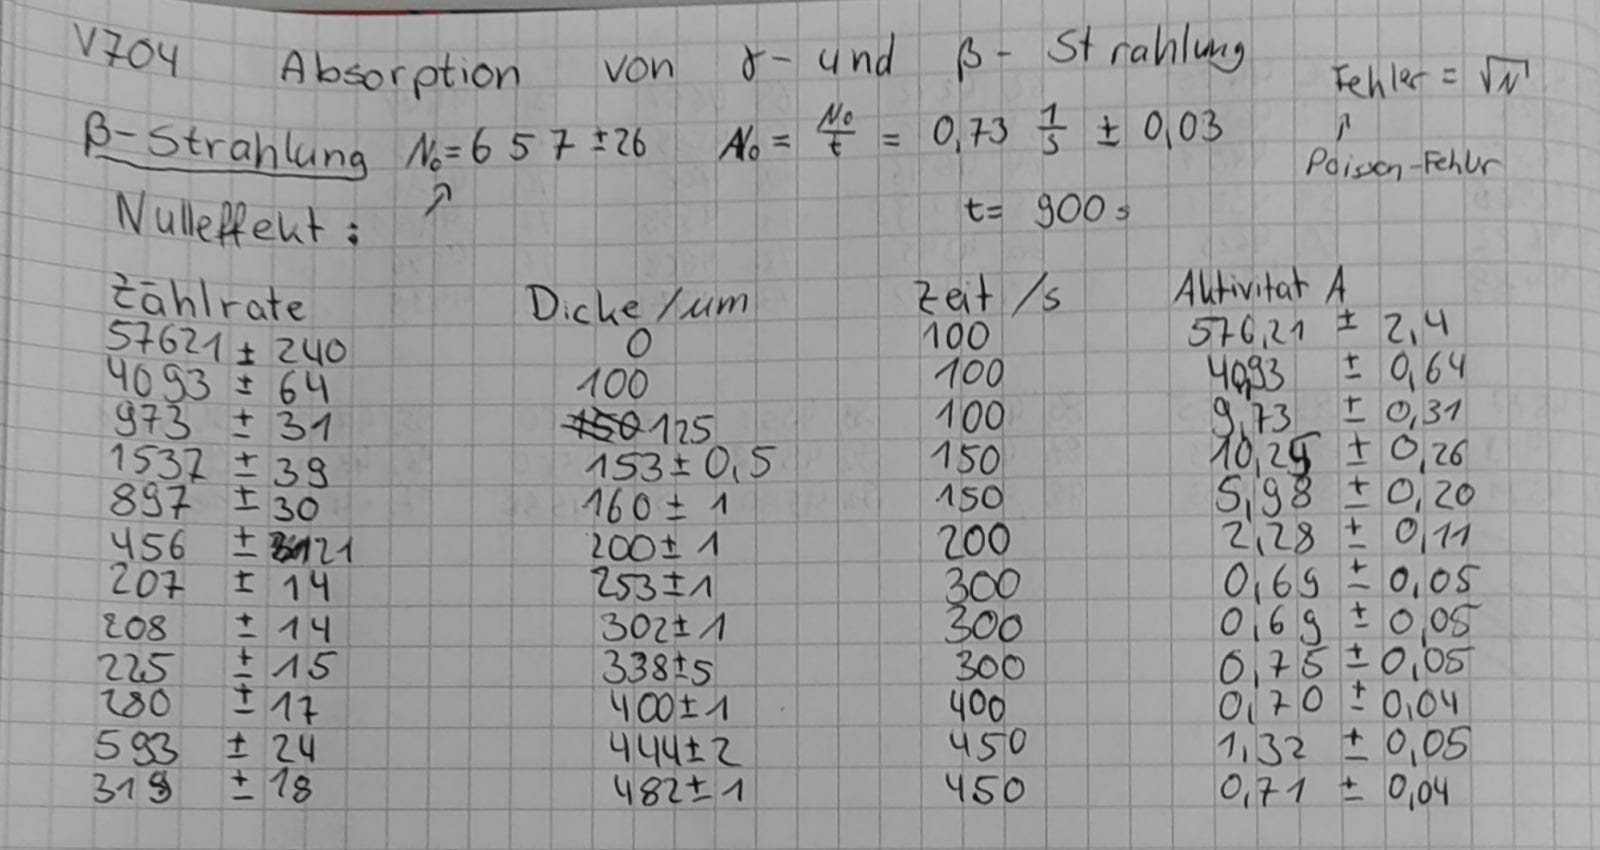 V704 Absorption von γ- und β- Strahlung
Fehler = √N
β-Strahlung N₀=657 ±26 A₀ = N₀/t = 0,73 1/s ± 0,03
↗ ↗ Poisson-Fehler
Nulleffekt: t= 900s
Zählrate Dicke/um Zeit /s Aktivitat A
57621 ± 240 0 100 576,21 ± 2,4
4093 ± 64 100 100 40,93 ± 0,64
973 ± 31 125 100 9,73 ± 0,31
1537 ± 39 153 ± 0,5 150 10,25 ± 0,26
897 ± 30 160 ± 1 150 5,98 ± 0,20
456 ± 21 200 ± 1 200 2,28 ± 0,11
207 ± 14 253 ± 1 300 0,69 ± 0,05
208 ± 14 302 ± 1 300 0,69 ± 0,05
225 ± 15 338 ± 5 300 0,75 ± 0,05
280 ± 17 400 ± 1 400 0,70 ± 0,04
593 ± 24 444 ± 2 450 1,32 ± 0,05
319 ± 18 482 ± 1 450 0,71 ± 0,04